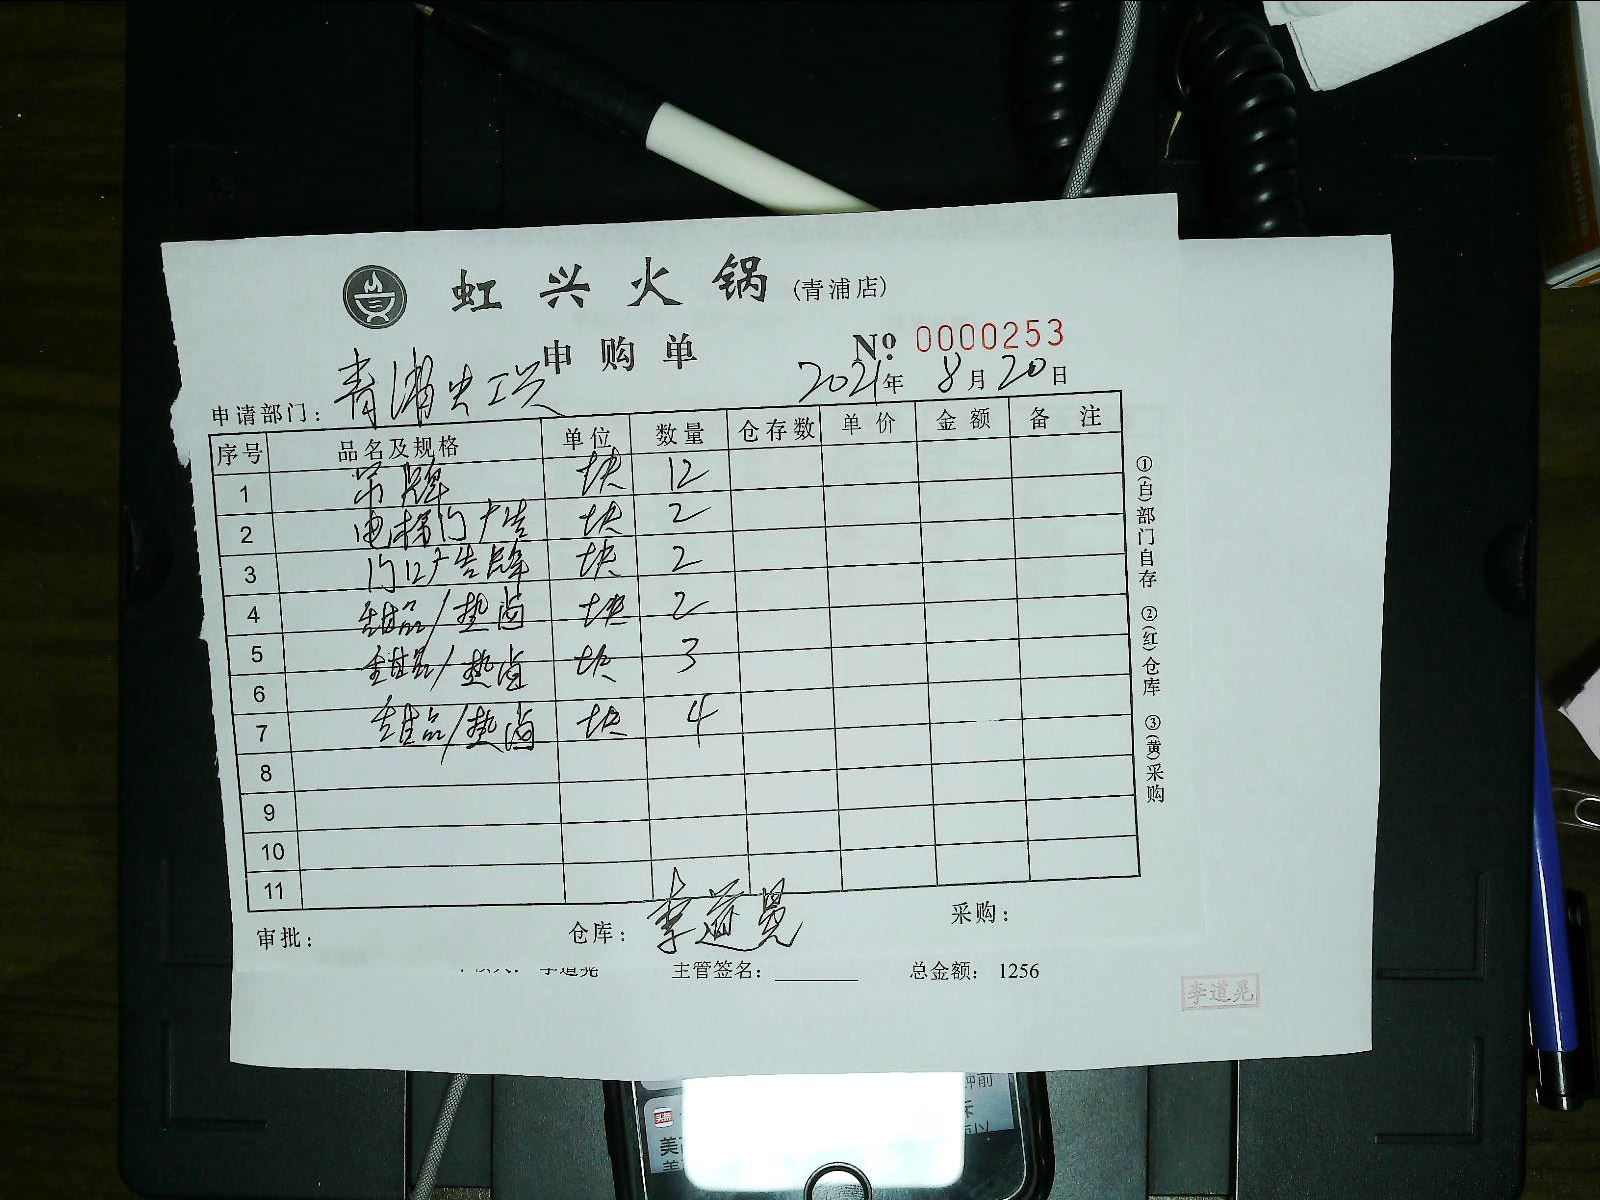 虹兴火锅(青浦店)
申购单 No 0000253
申请部门: 青浦 2021年 8月20日
序号 品名及规格 单位 数量 仓存数 单价 金额 备注
1 吊牌 块 12
2 电梯门广告 块 2
3 门口广告牌 块 2
4 甜品/垫卤 块 2
5 甜品/垫卤 块 3
6
7 甜品/垫卤 块 4
8
9
10
11
审批: 仓库: 李道晃 采购:
①(白)部门自存 ②(红)仓库 ③(黄)采购
李道晃 主管签名: 总金额: 1256
李道晃
头条
钟前
美